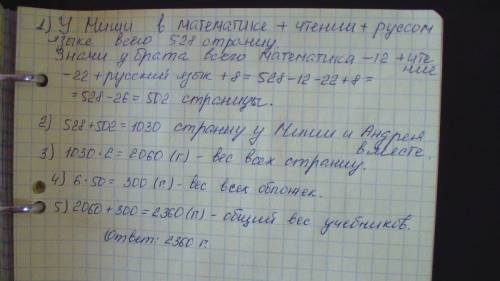 1) У Миши в математике + чтении + руссом
языке всего 528 страниц.
Значи у брата всего математика -12 + чте
ние
-22 + русский язык + 8 = 528 -12 -22 + 8 =
= 528 - 26 = 502 страницы.
2) 528 + 502 = 1030 страниц у Миши и Андрея
вместе.
3) 1030 · 2 = 2060 (г) - вес всех страниц.
4) 6 · 50 = 300 (г) - вес всех обложек.
5) 2060 + 300 = 2360 (г) - общий вес учебников.
Ответ: 2360 г.